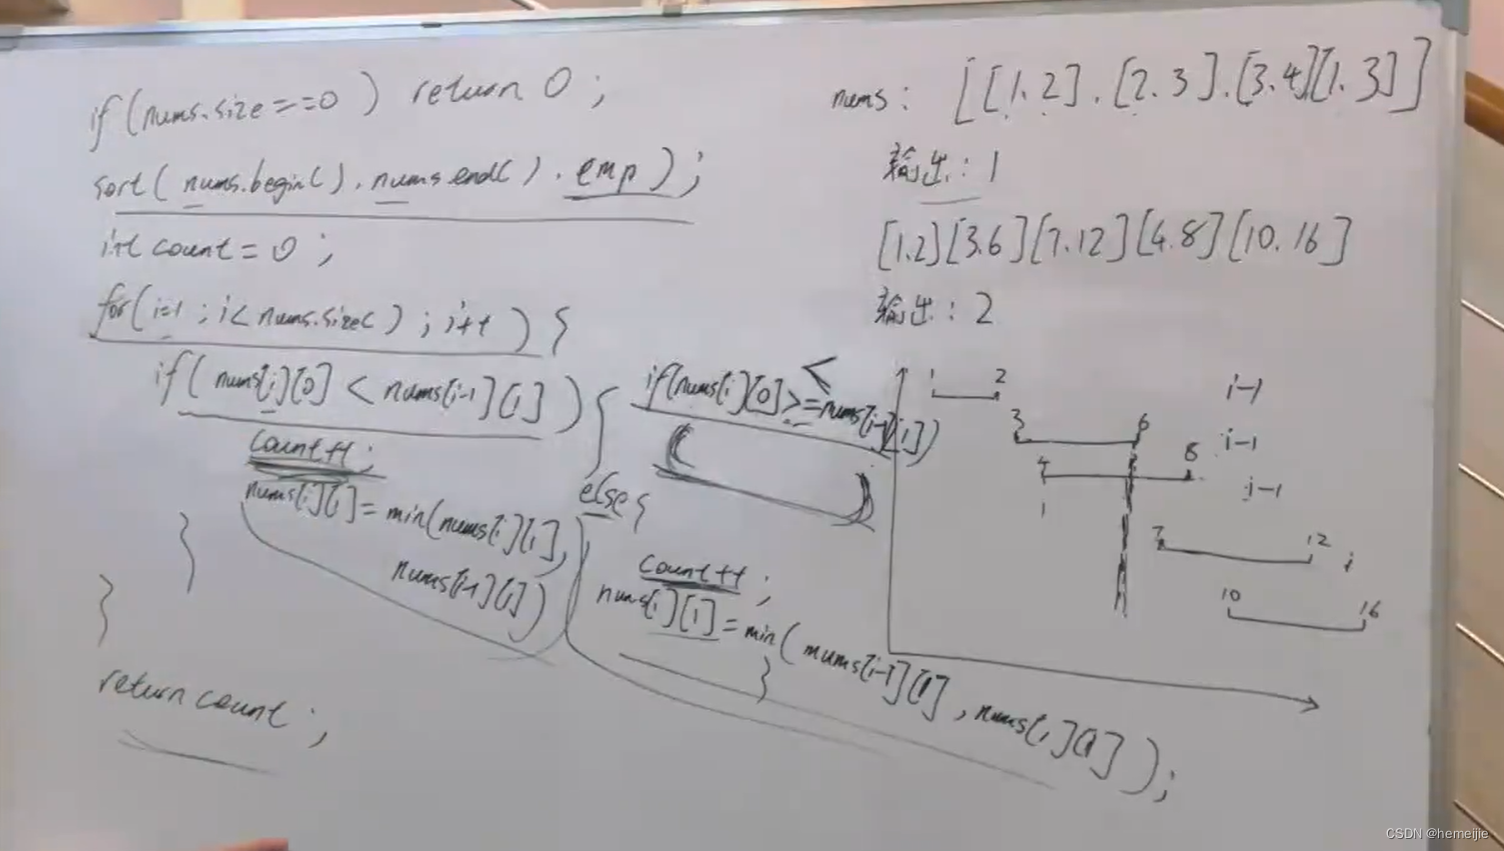 if(nums.size==0) return 0;
sort(nums.begin(),nums.end(),cmp);
int count=0;
for(i=1;i<nums.size();i++){
if(nums[i][0]<nums[i-1][1]){
count++;
nums[i][1]=min(nums[i][1],
nums[i-1][1])
}
}
return count;
<
if(nums[i][0]>=nums[i-1][1])
else{
count++;
nums[i][1]=min(nums[i-1][1],nums[i][1]);
}
nums: [[1.2].[2.3].[3.4][1.3]]
输出:1
[1.2][3.6][7.12][4.8][10.16]
输出:2
1 2 i-1
3 6 i-1
4 8 i-1
1
7 12 i
10 16
CSDN @hemeijie